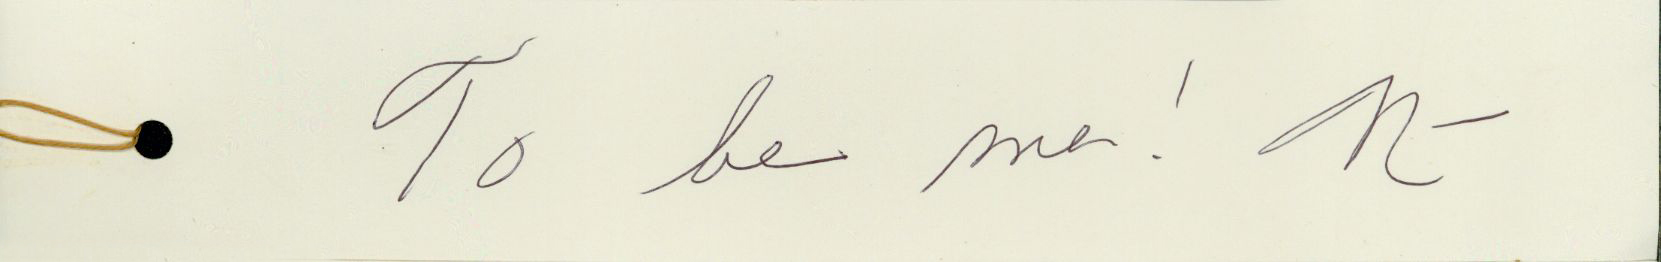 To be me! N-